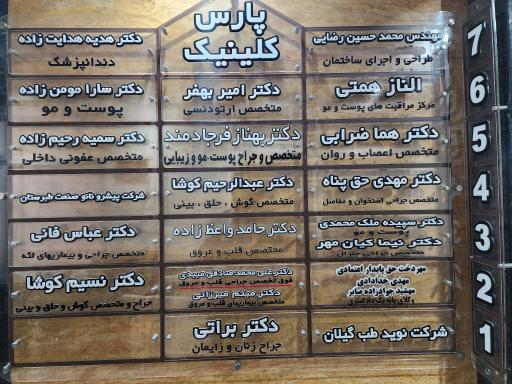 پارس
کلینیک
7
مهندس محمد حسین رضایی
طراحی و اجرای ساختمان
دکتر هدیه هدایت زاده
دندانپزشک
6
الناز همتی
مرکز مراقبت های پوست و مو
دکتر امیر بهفر
متخصص ارتودنسی
دکتر سارا مومن زاده
پوست و مو
5
دکتر هما ضرابی
متخصص اعصاب و روان
دکتر بهناز فرجادمند
متخصص و جراح پوست-مو و زیبایی
دکتر سمیه رحیم زاده
متخصص عفونی داخلی
4
دکتر مهدی حق پناه
متخصص جراحی استخوان و مفاصل
دکتر عبدالرحیم کوشا
متخصص گوش ، حلق ، بینی
شرکت پیشرو نانو صنعت طبرستان
3
دکتر سپیده ملک محمدی
پوست و مو
دکتر نیما کیان مهر
دکتر حامد واعظ زاده
متخصص قلب و عروق
دکتر عباس فانی
متخصص جراحی و بیماریهای لثه
2
مهردخت حق پایدار اعتمادی
مهدی خدادادی
وکلای پایه یک دادگستری
دکتر علی محمد صادقی میبدی
فوق تخصص جراحی قلب و عروق
دکتر میثم میرزائی
متخصص بیماریهای قلب و عروق
دکتر نسیم کوشا
جراح و متخصص گوش و حلق و بینی
1
شرکت نوید طب گیلان
دکتر براتی
جراح زنان و زایمان